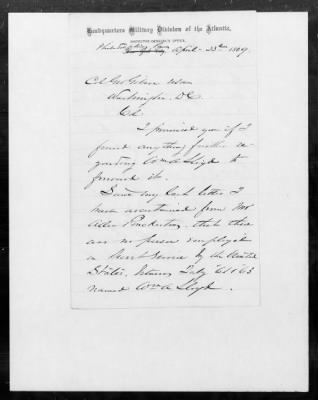 Headquarters Military Division of the Atlantic,
INSPECTOR GENERAL'S OFFICE,
April 23rd 1869
Col Geo Gibson USA
Washington D.C.
Col
I promised you if I
found anything further re
garding Wm A Lloyd to
forward it.
Since my last letter I
have ascertained from Mr
Allen Pinkerton, that there
was no person employed
in Secret Service by the United
States, between July '61 & '63
named Wm A Lloyd.